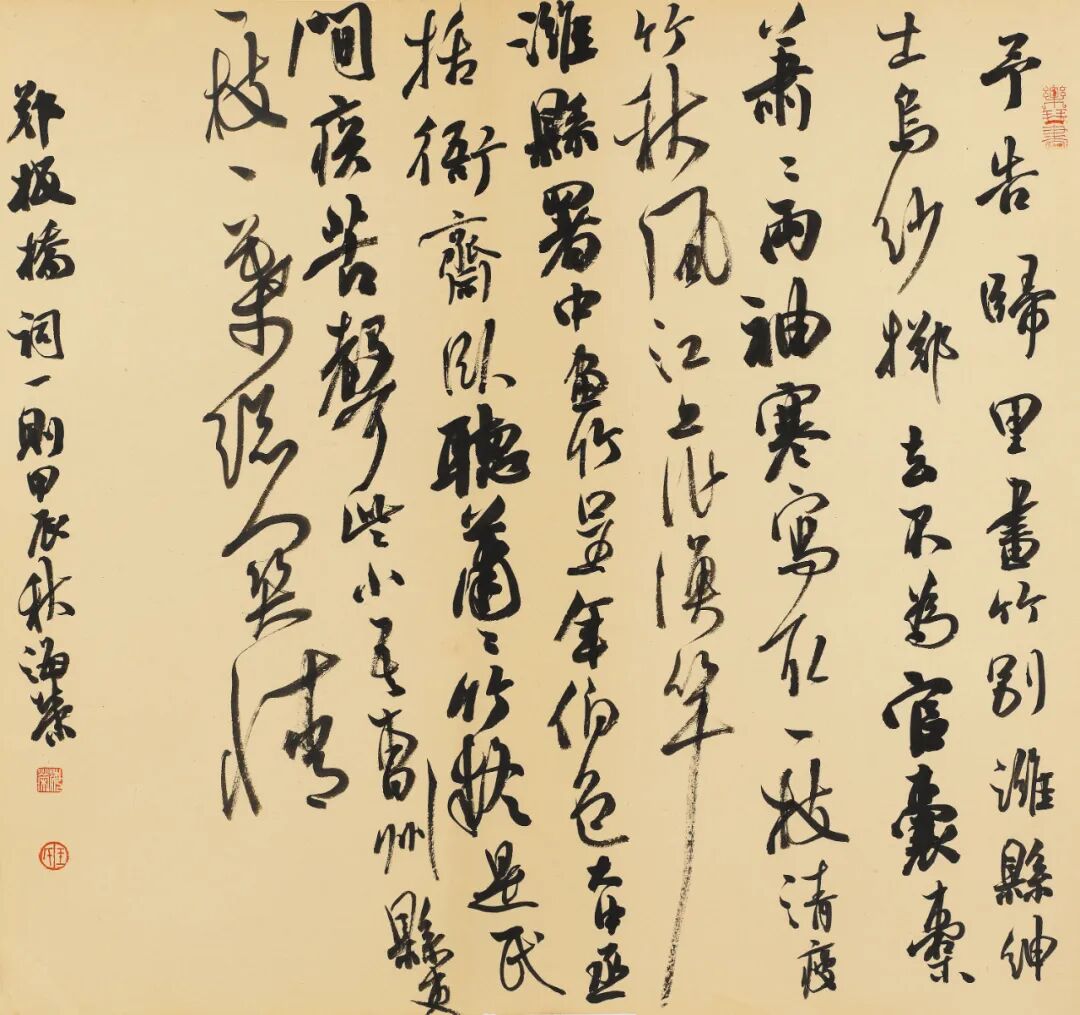 樂琴書
予告歸里畫竹別濰縣紳
士烏紗擲去不為官囊橐
蕭〻兩袖寒寫取一枝清瘦
竹秋風江上作漁竿
濰縣署中畫竹呈年伯包大中丞
括衙齋臥聽蕭〻竹疑是民
間疾苦聲些小吾曹州縣吏
一枝一葉總關情
鄭板橋詞一則甲辰秋海